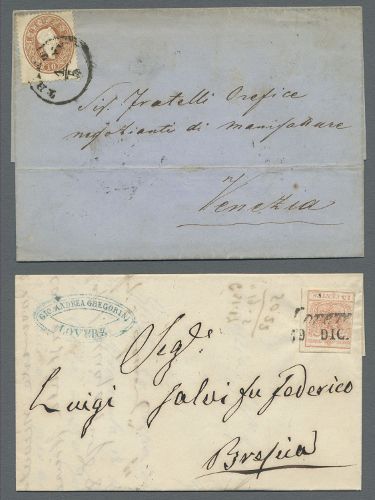 Sig. Fratelli Orefice
negozianti di manifatture
Venezia
GIO. ANDREA GREGORINI
LOVERE
Lovere
19 DIC.
Sigr.
Luigi Salvi fu Federico
Brescia